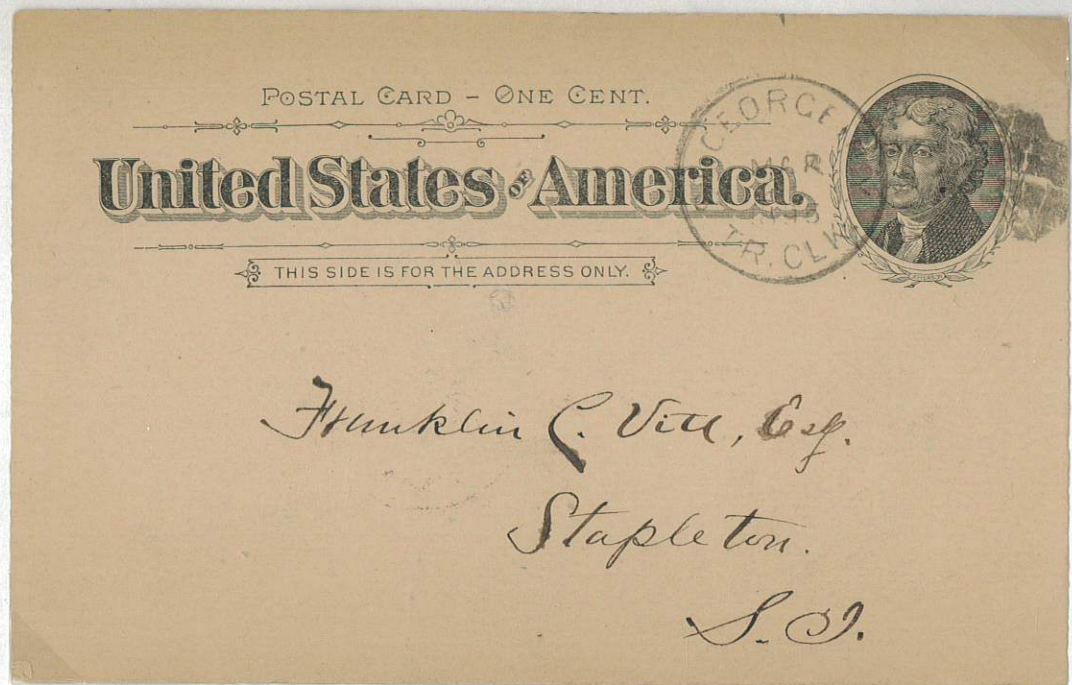 POSTAL CARD – ONE CENT.
United States of America.
THIS SIDE IS FOR THE ADDRESS ONLY.
GEORGE
MAR
TR. CLK
Franklin C. Vitt, Esq.
Stapleton.
S. I.